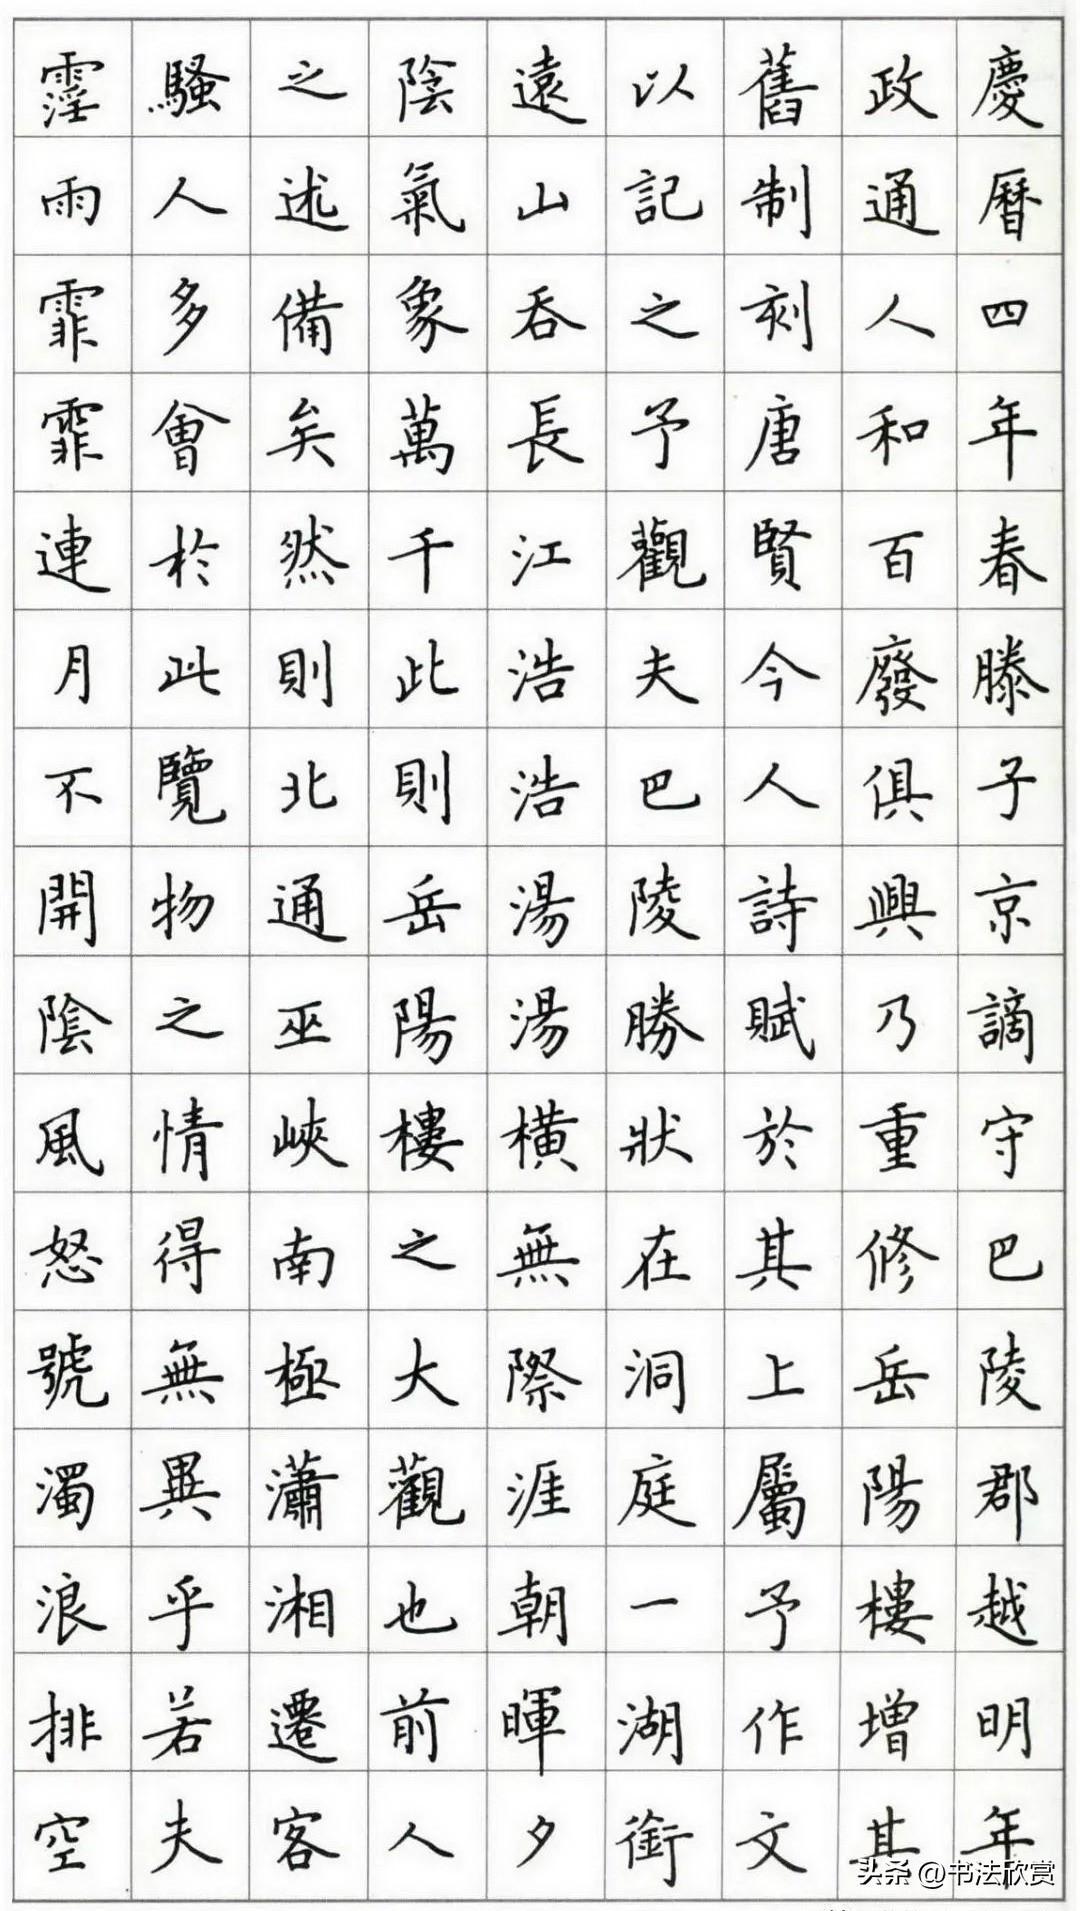 慶曆四年春滕子京謫守巴陵郡越明年
政通人和百廢俱興乃重修岳陽樓增其
舊制刻唐賢今人詩賦於其上屬予作文
以記之予觀夫巴陵勝狀在洞庭一湖銜
遠山吞長江浩浩湯湯橫無際涯朝暉夕
陰氣象萬千此則岳陽樓之大觀也前人
之述備矣然則北通巫峽南極瀟湘遷客
騷人多會於此覽物之情得無異乎若夫
霪雨霏霏連月不開陰風怒號濁浪排空
头条 @书法欣赏